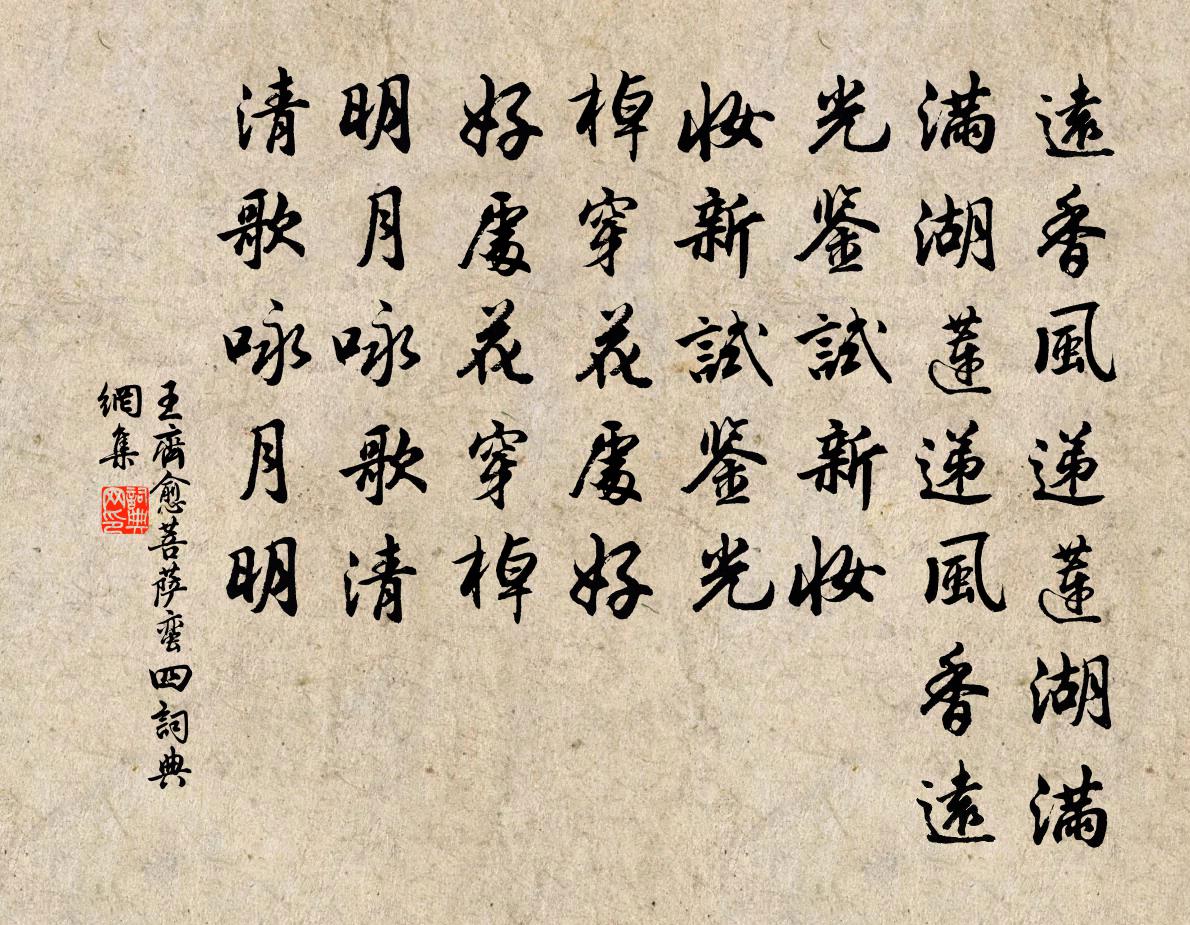 遠香風递蓮湖滿
滿湖蓮递風香遠
光鉴試新妝
妝新試鉴光
棹穿花處好
好處花穿棹
明月咏歌清
清歌咏月明
王齊愈菩萨蛮四詞典
網集
詞典网印